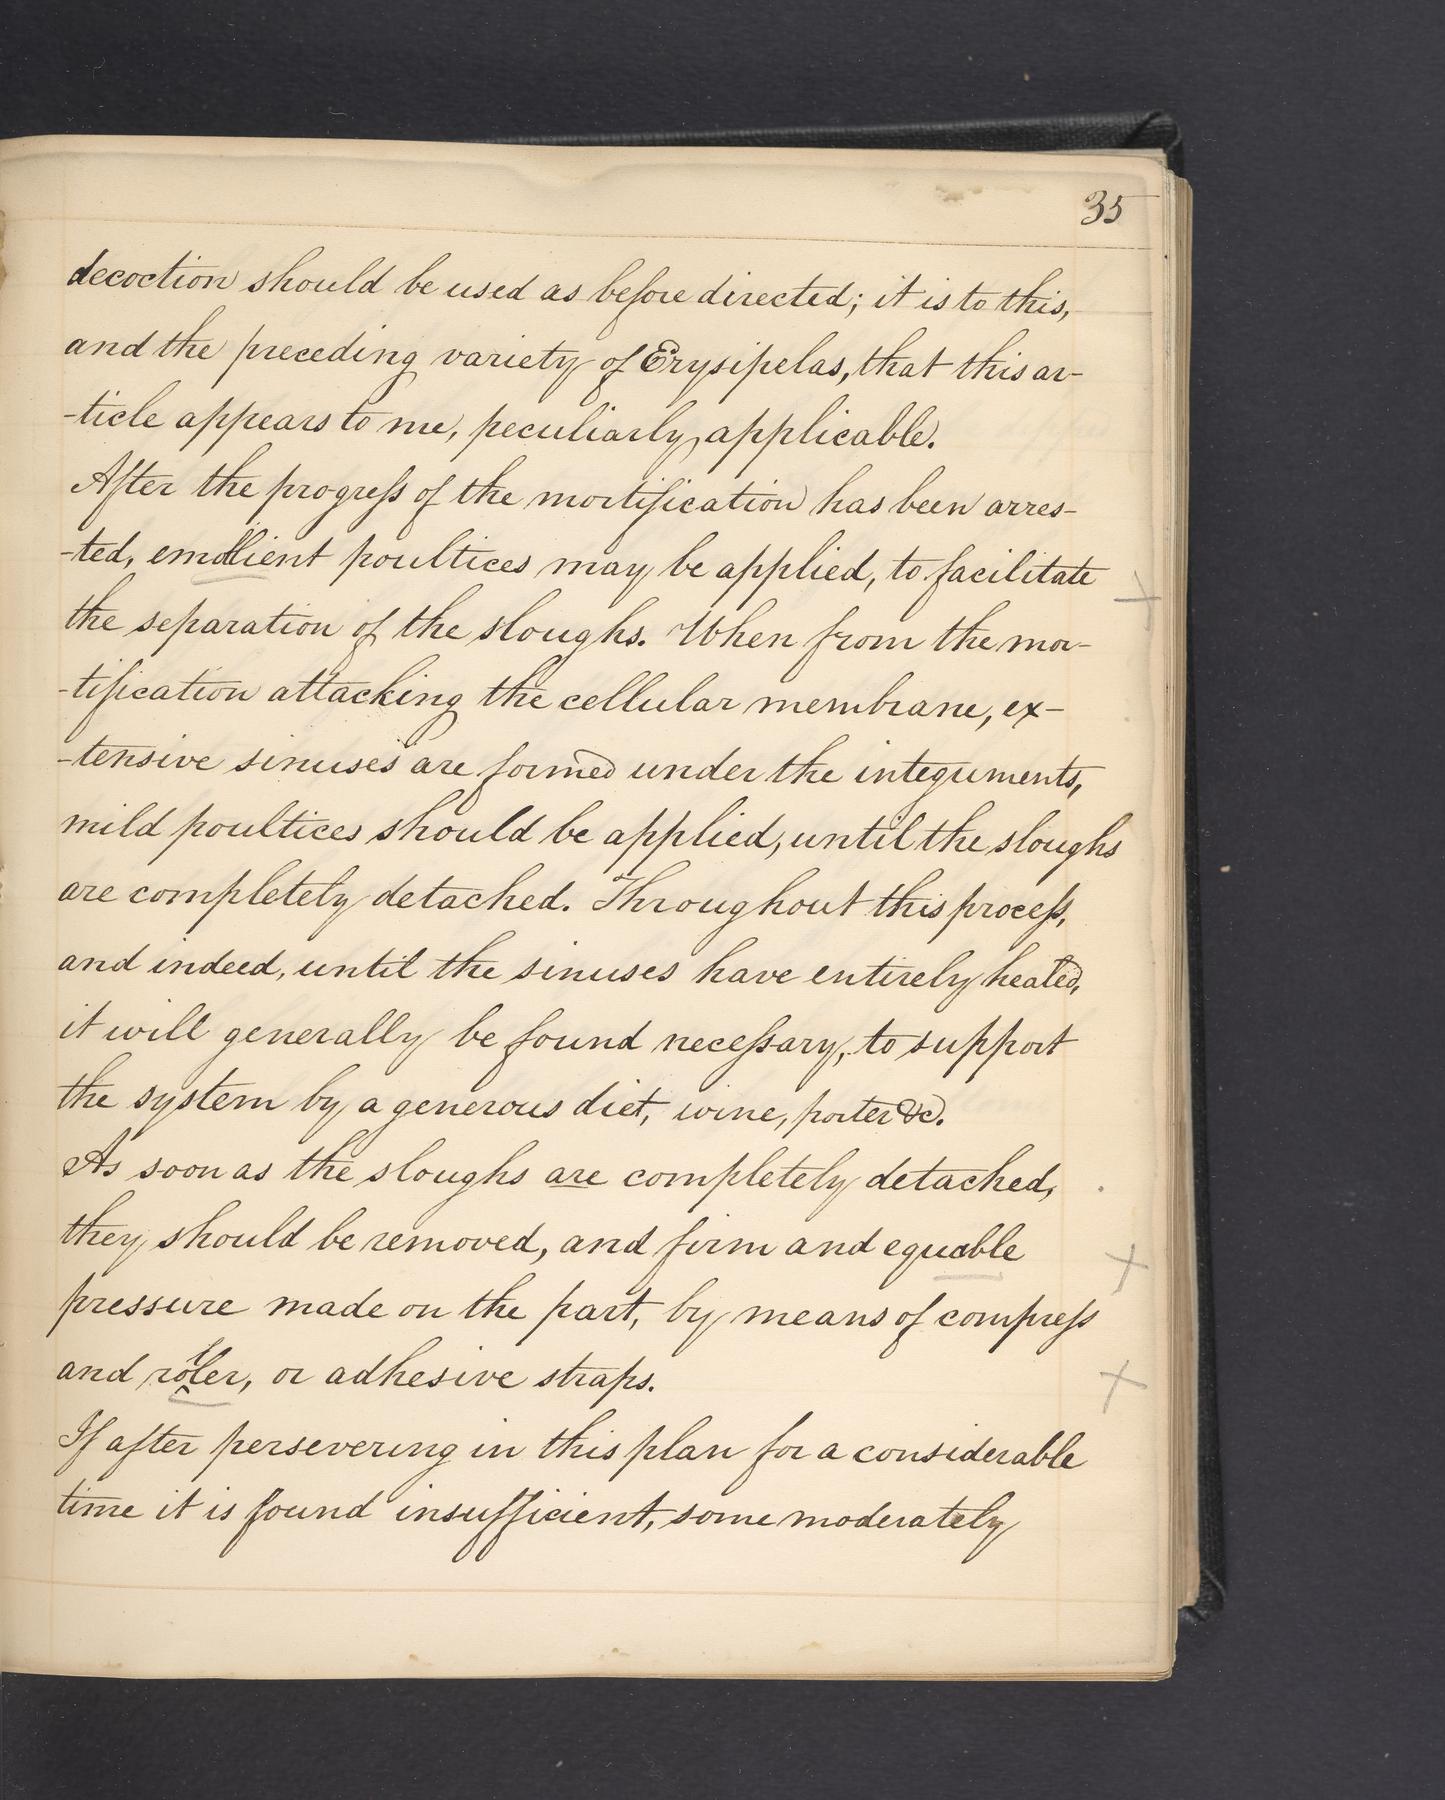 35
decoction should be used as before directed; it is to this,
and the preceding variety of Erysipelas, that this ar-
-ticle appears to me, peculiarly applicable.
After the progress of the mortification has been arres-
-ted, emollient poultices may be applied, to facilitate
the separation of the sloughs. When from the mor-
-tification attacking the cellular membrane, ex-
-tensive sinuses are formed under the integuments,
mild poultices should be applied, until the sloughs
are completely detached. Throughout this process,
and indeed, until the sinuses have entirely healed,
it will generally be found necessary, to support
the system by a generous diet, wine, porter &c.
As soon as the sloughs are completely detached,
they should be removed, and firm and equable
pressure made on the part, by means of compress
and roller, or adhesive straps.
If after persevering in this plan for a considerable
time it is found insufficient, some moderately